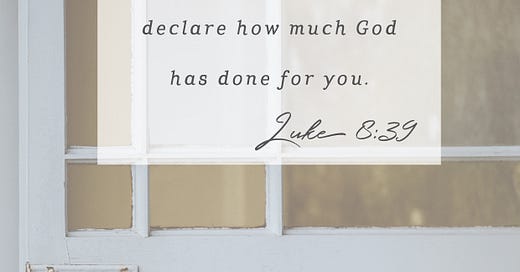 declare how much God
has done for you.
Luke 8:39